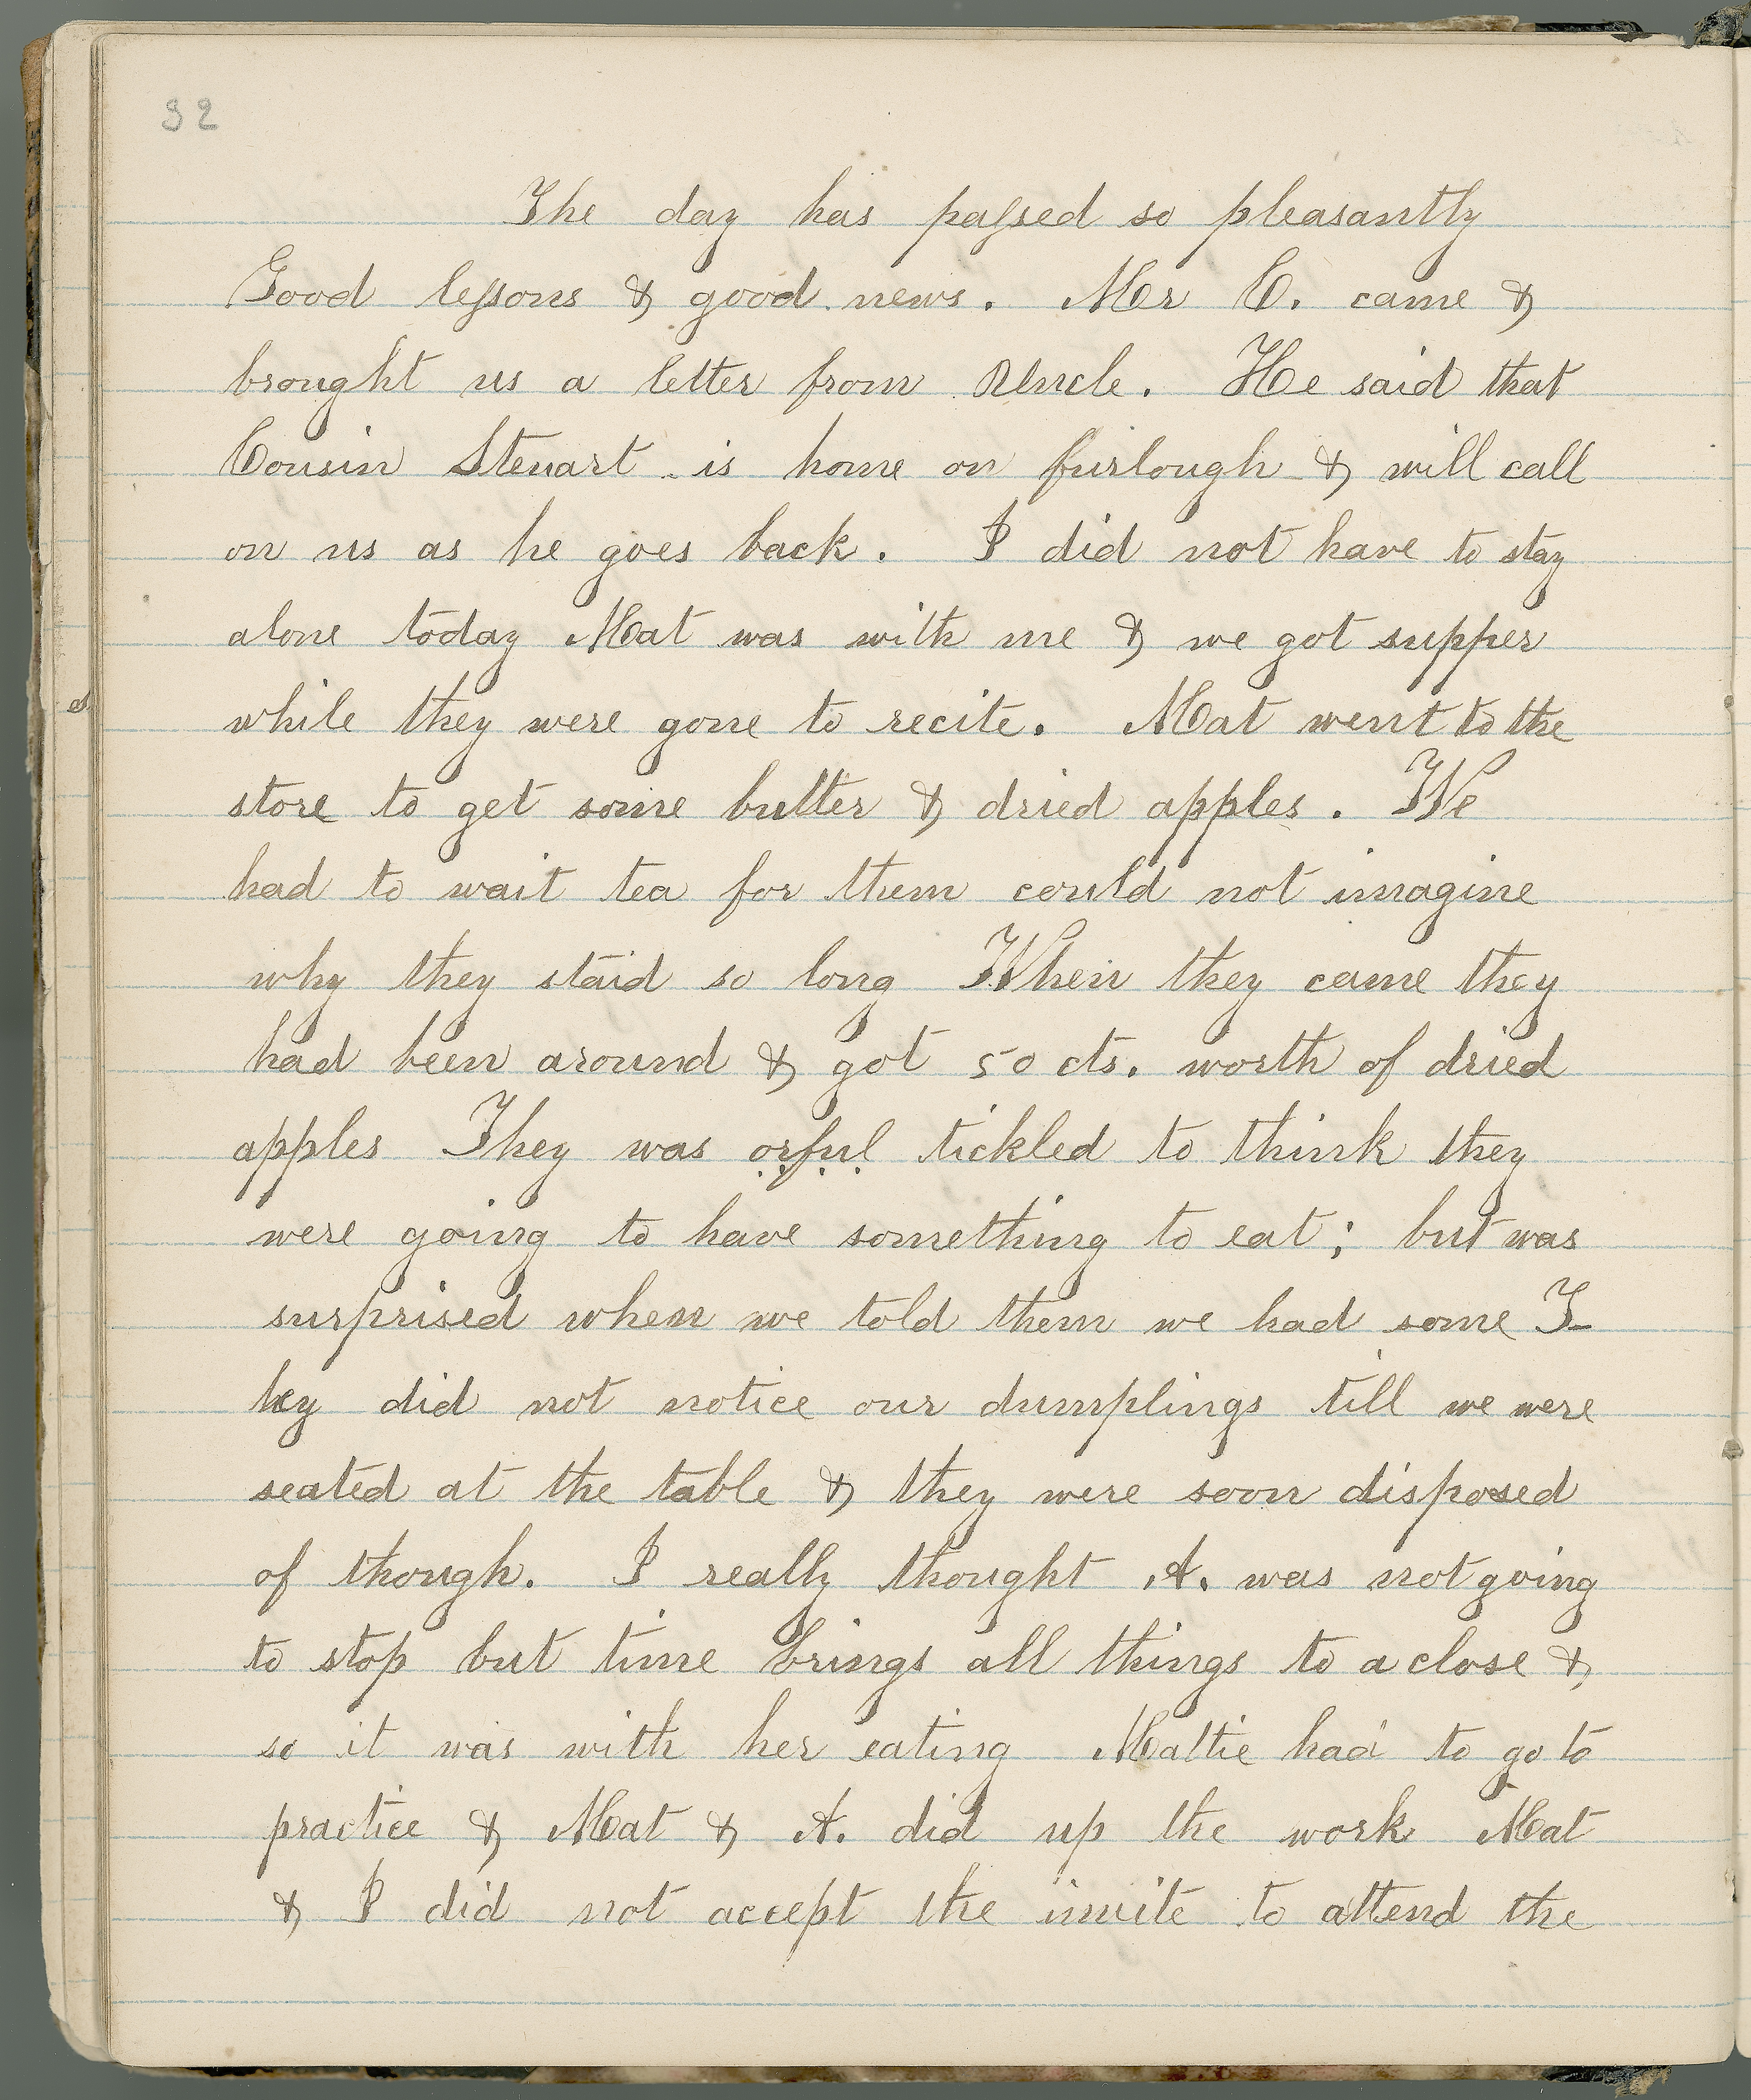 32
The day has passed so pleasantly
Good lessons & good news. Mr C. came &
brought us a letter from Uncle. He said that
Cousin Stewart is home on furlough & will call
on us as he goes back. I did not have to stay
alone today Mat was with me & we got supper
while they were gone to recite. Mat went to the
store to get some butter & dried apples. We
had to wait tea for them could not imagine
why they staid so long When they came they
had been around & got 50 cts. worth of dried
apples They was orful tickled to think they
were going to have something to eat; but was
surprised when we told them we had some T-
hey did not notice our dumplings till we were
seated at the table & they were soon disposed
of though. I really thought A. was not going
to stop but time brings all things to a close &
so it was with her eating Mattie had to go to
practice & Mat & A. did up the work Mat
& I did not accept the invite to attend the